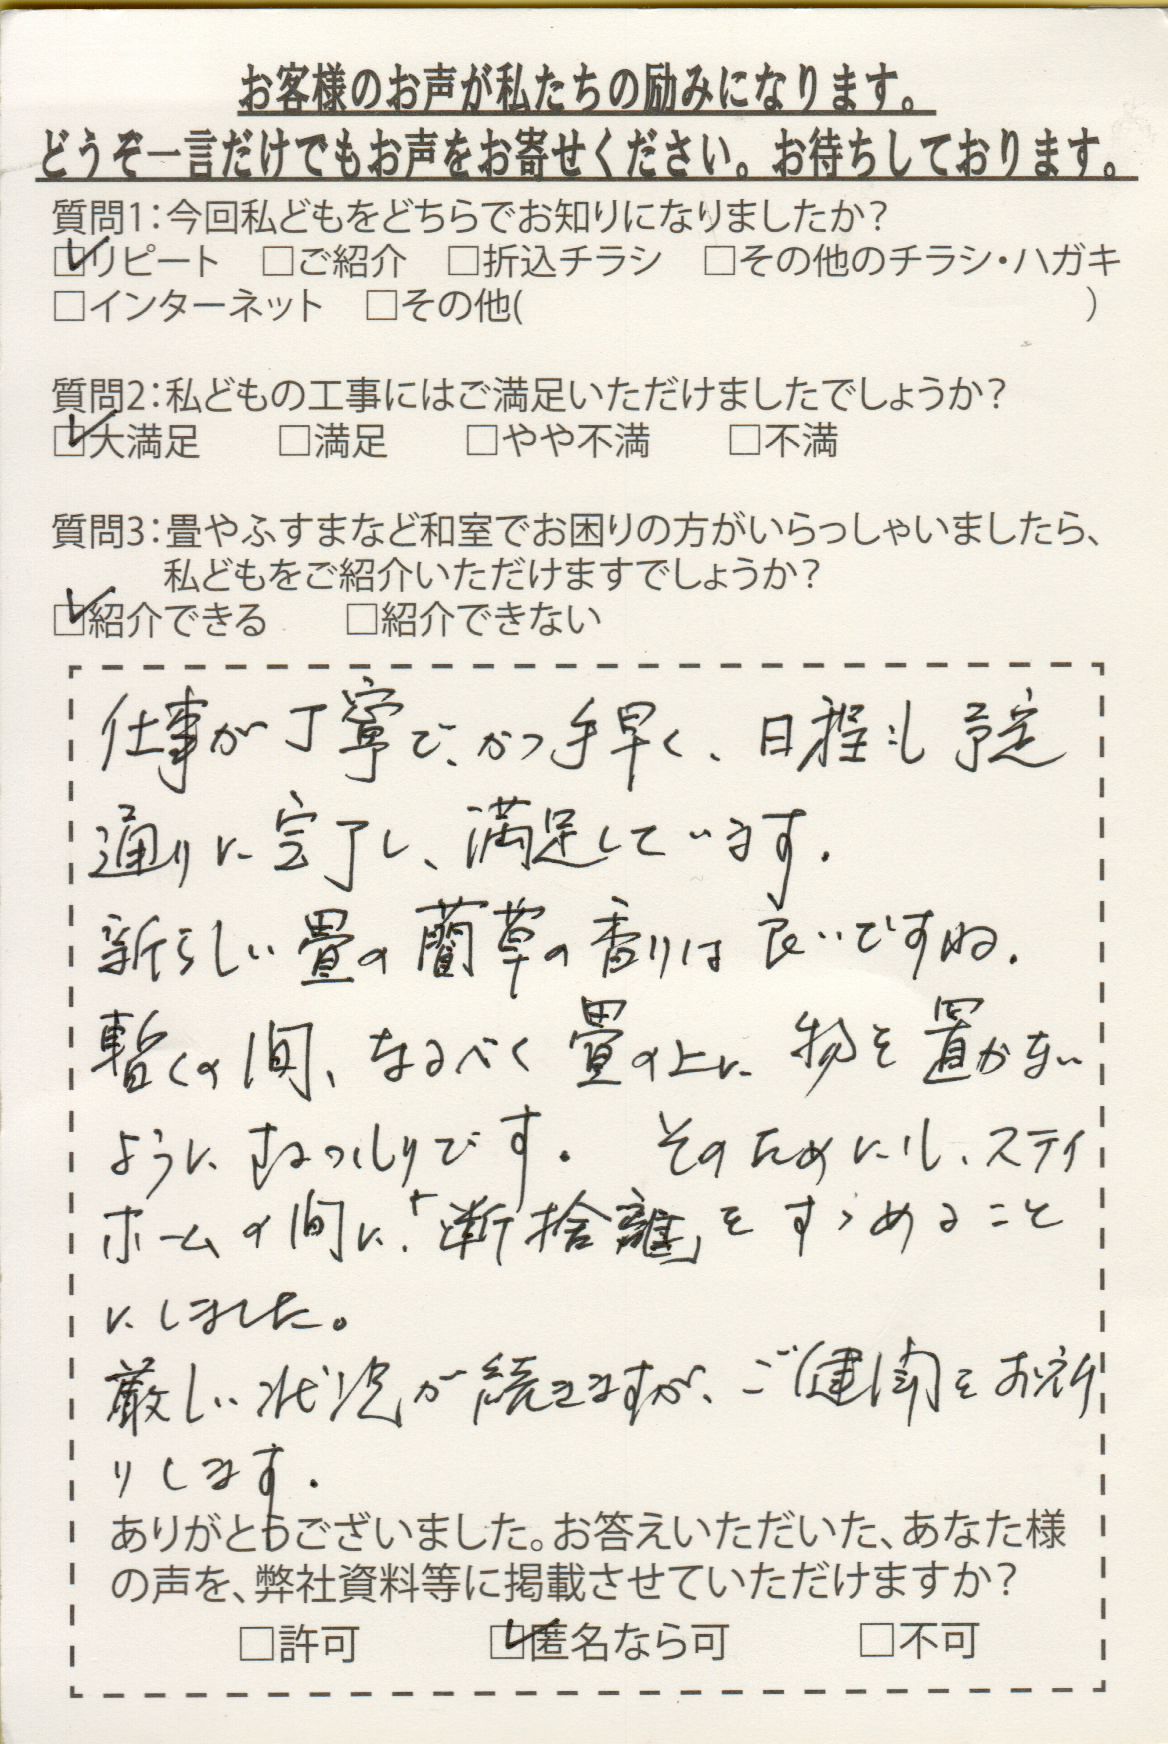 お客様のお声が私たちの励みになります。
どうぞ一言だけでもお声をお寄せください。お待ちしております。
質問1：今回私どもをどちらでお知りになりましたか？
☑リピート　□ご紹介　□折込チラシ　□その他のチラシ・ハガキ
□インターネット　□その他(　　　)
質問2：私どもの工事にはご満足いただけましたでしょうか？
☑大満足　□満足　□やや不満　□不満
質問3：畳やふすまなど和室でお困りの方がいらっしゃいましたら、
私どもをご紹介いただけますでしょうか？
☑紹介できる　□紹介できない
仕事が丁寧で、かつ手早く、日程も予定
通りに完了し、満足しています.
新らしい畳の藺草の香りは良いですね.
暫くの間、なるべく畳の上に物を置かない
ように するつもりです. そのためにも、ステイ
ホームの間に、「断捨離」をすゝめること
にしました。
厳しい状況が続きますが、ご健闘をお祈
りします.
ありがとうございました。お答えいただいた、あなた様
の声を、弊社資料等に掲載させていただけますか？
□許可　☑匿名なら可　□不可